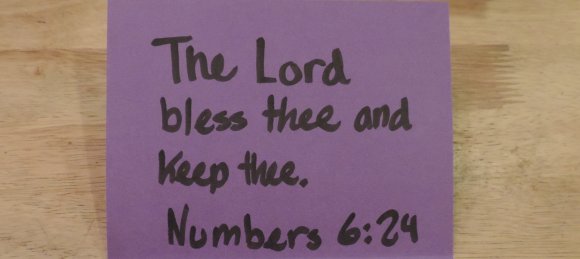 The Lord
bless thee and
Keep thee.
Numbers 6:24